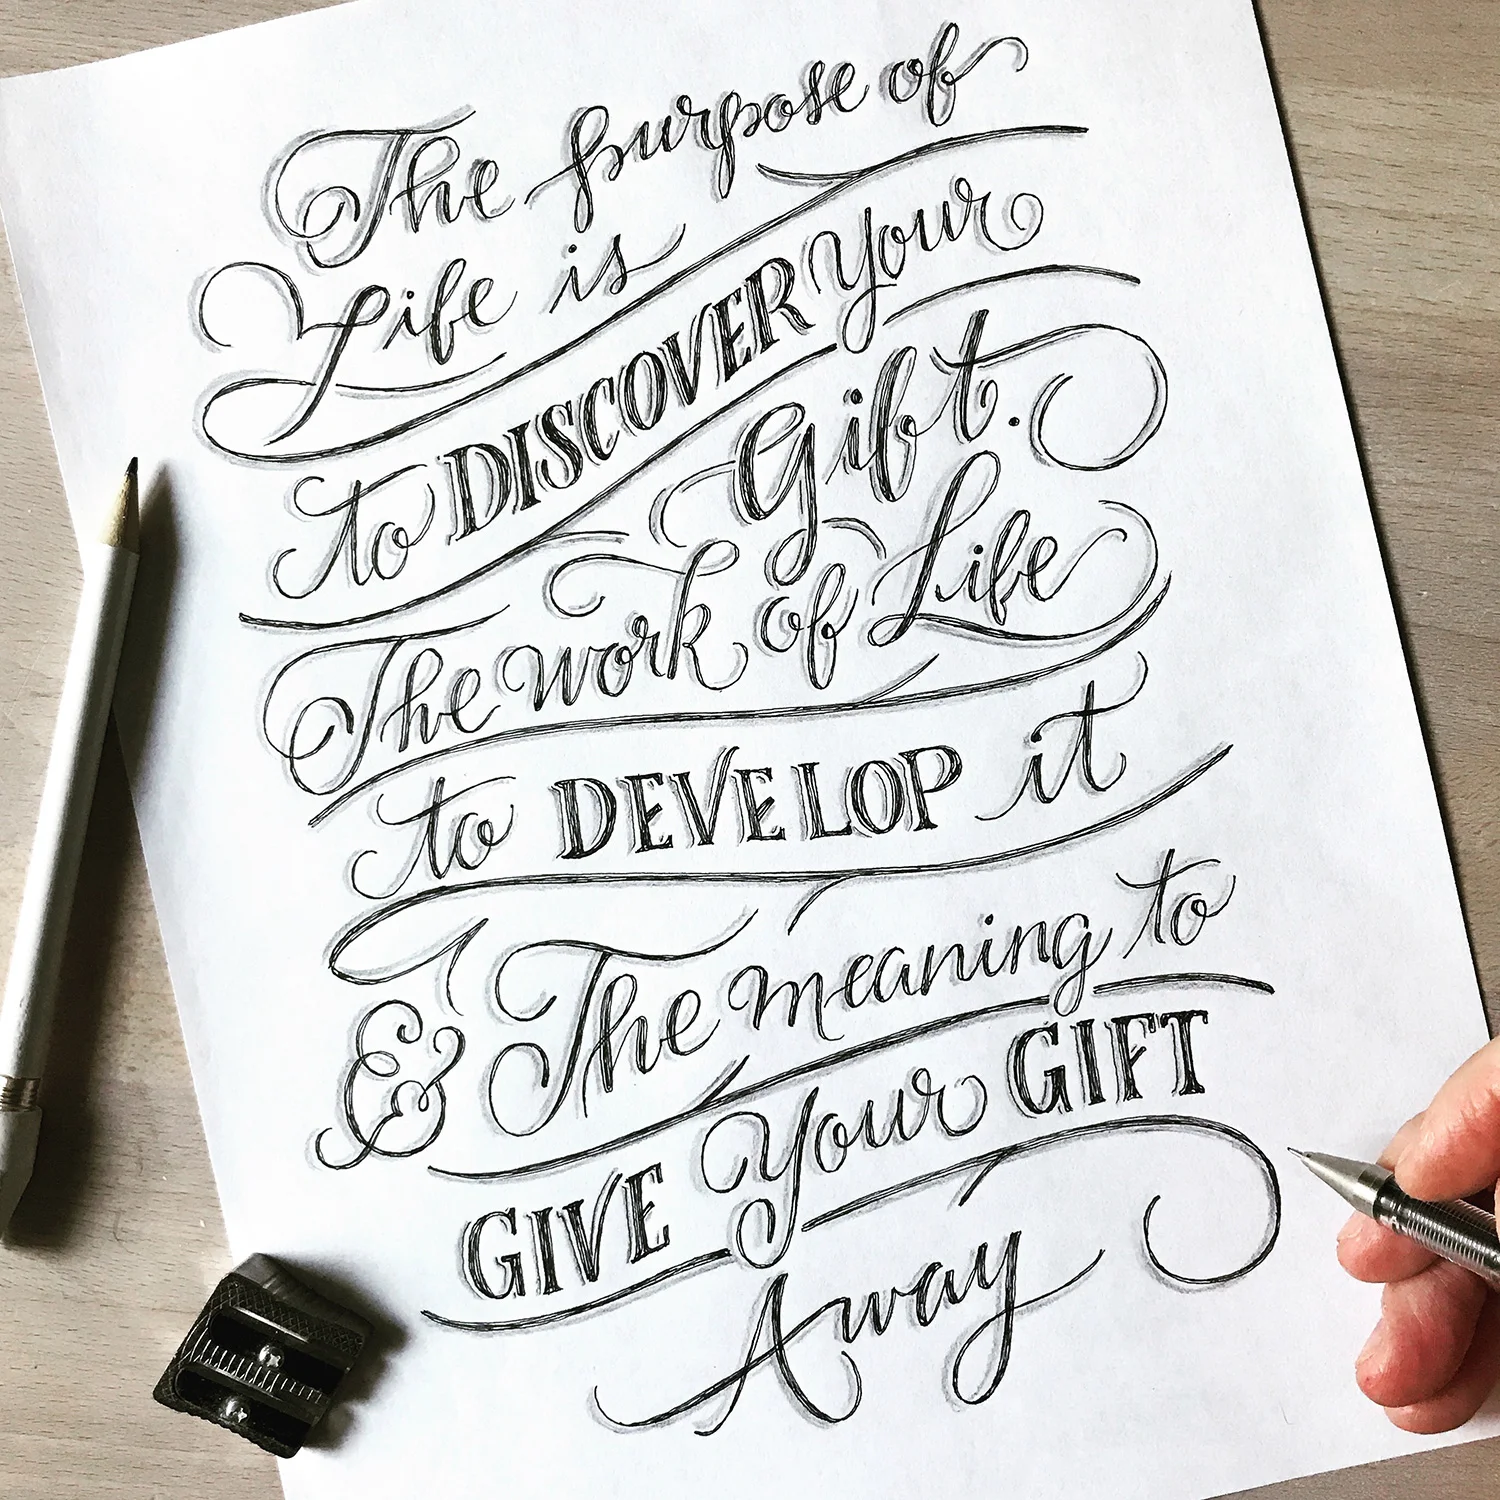 The purpose of
Life is
to DISCOVER Your
Gift.
The work of Life
to DEVELOP it
& The meaning to
GIVE Your GIFT
Away